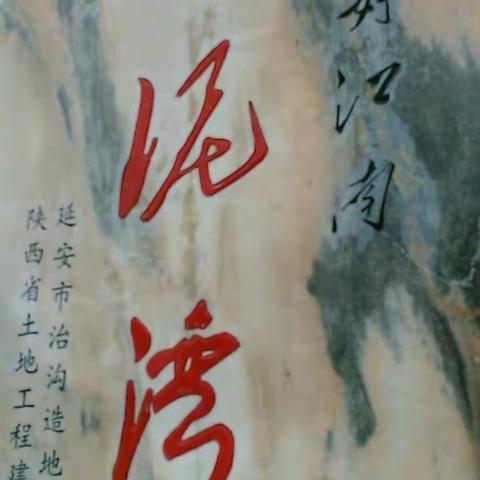 好江南
泥湾
延安市治沟造地
陕西省土地工程建